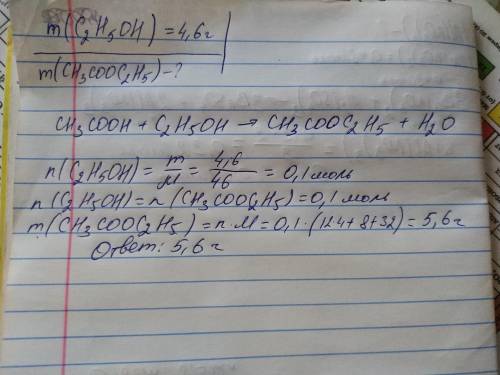 m(C₂H₅OH) = 4,6г
m(CH₃COOC₂H₅) - ?
CH₃COOH + C₂H₅OH → CH₃COOC₂H₅ + H₂O
n(C₂H₅OH) = m/M = 4,6/46 = 0,1 моль
n(C₂H₅OH) = n(CH₃COOC₂H₅) = 0,1 моль
m(CH₃COOC₂H₅) = n·M = 0,1·(12·4+8+32) = 5,6г
Ответ: 5,6г